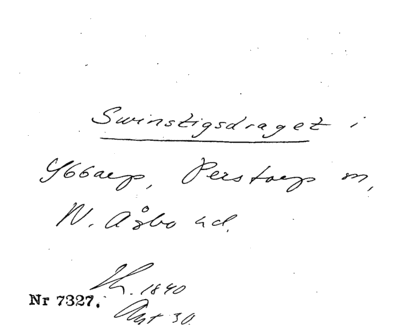 Swinstigsdraget i
Ybbarp, Perstorp sn,
N. Åsbo hd.
Nr 7327.
1840
Akt 30.